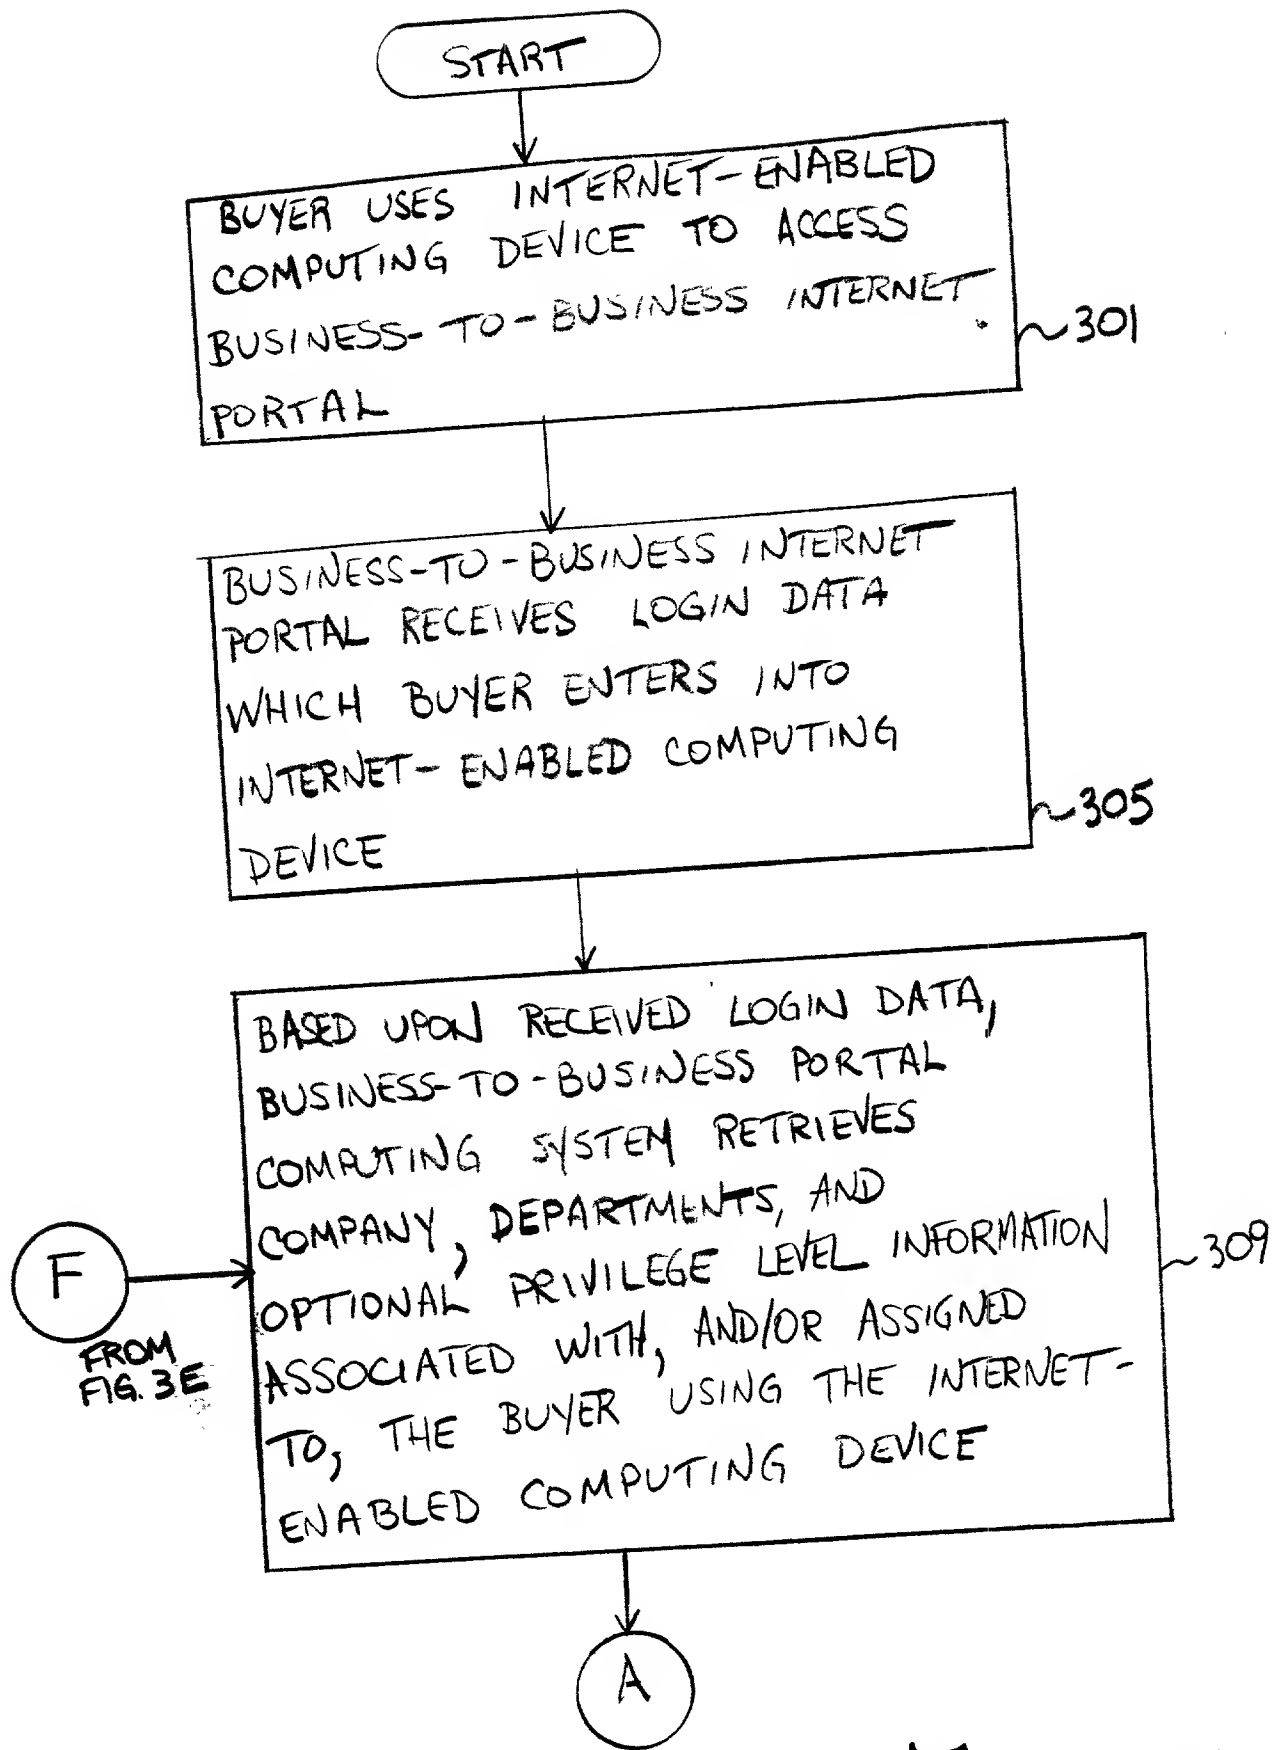 START
BUYER USES INTERNET-ENABLED
COMPUTING DEVICE TO ACCESS
BUSINESS-TO-BUSINESS INTERNET
PORTAL
301
BUSINESS-TO-BUSINESS INTERNET
PORTAL RECEIVES LOGIN DATA
WHICH BUYER ENTERS INTO
INTERNET-ENABLED COMPUTING
DEVICE
305
BASED UPON RECEIVED LOGIN DATA,
BUSINESS-TO-BUSINESS PORTAL
COMPUTING SYSTEM RETRIEVES
COMPANY, DEPARTMENTS, AND
OPTIONAL PRIVILEGE LEVEL INFORMATION
ASSOCIATED WITH, AND/OR ASSIGNED
TO, THE BUYER USING THE INTERNET-
ENABLED COMPUTING DEVICE
309
F
FROM
FIG. 3E
A